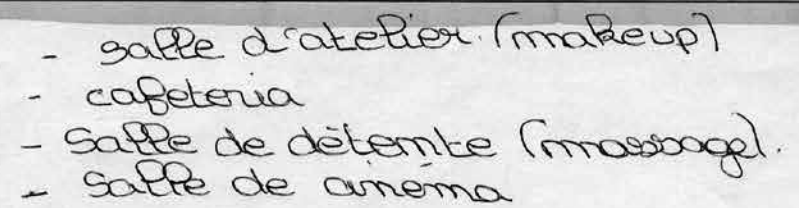 - salle d'atelier (makeup)
- cafeteria
- Salle de détente (massage).
- Salle de cinema